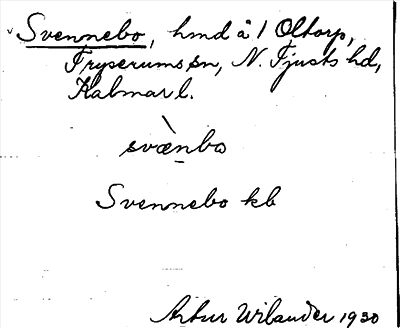 Svennebo, hmd å 1 Oltorp,
Fryserums sn, N. Tjusts hd,
Kalmar l.
svæ̀nbo
Svennebo kb
Artur Wilander 1930